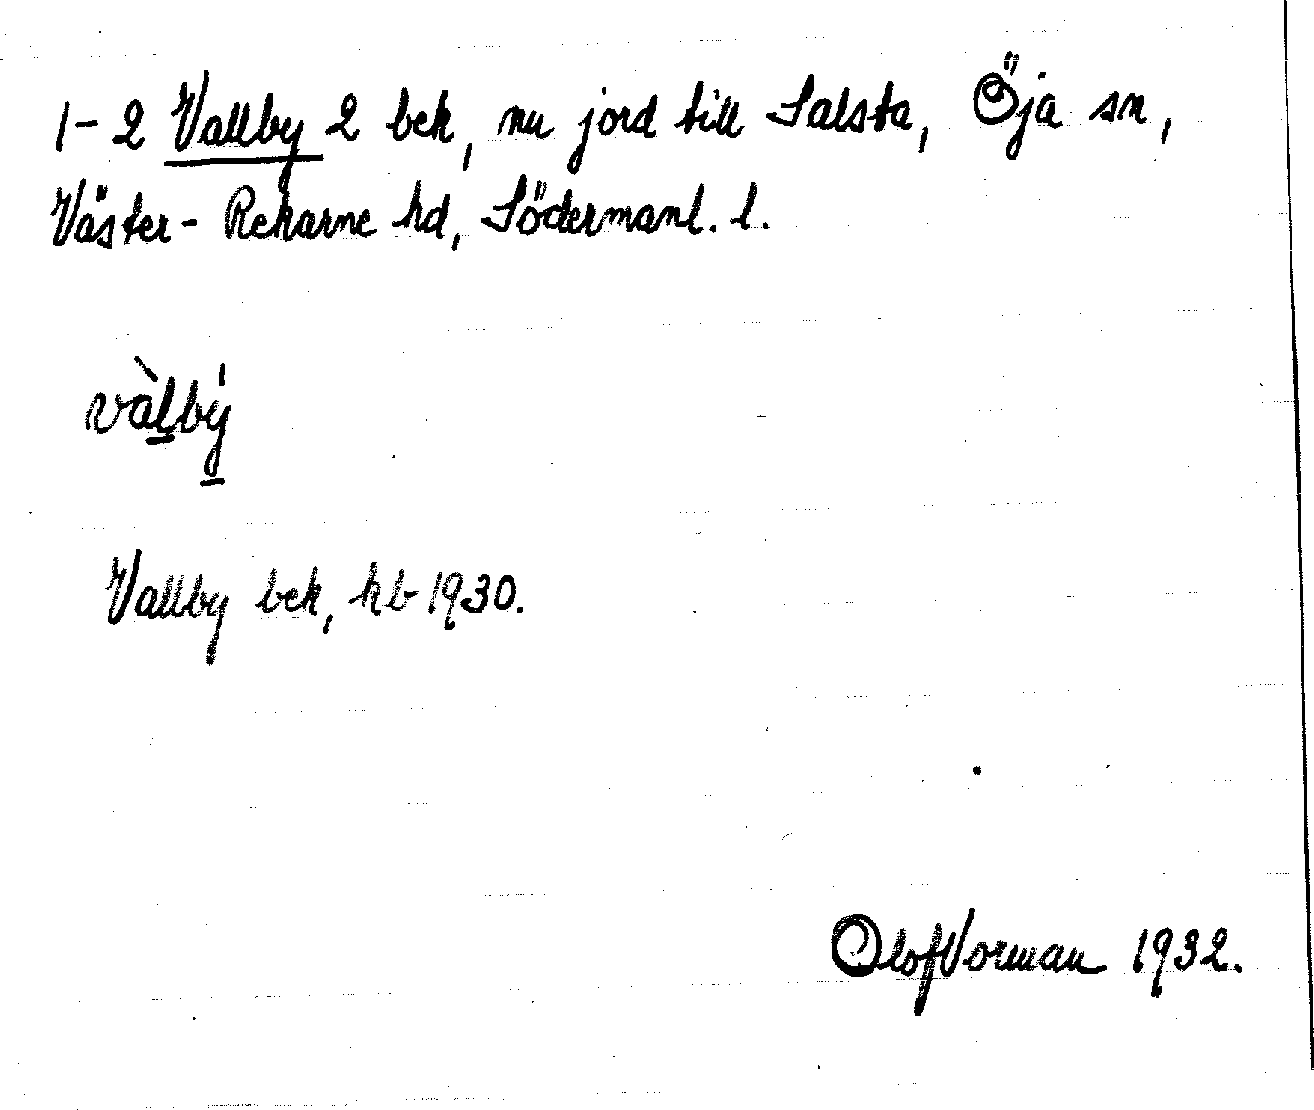 1-2 Vallby 2 bek, nu jord till Salsta, Öja sn,
Väster-Rekarne hd, Södermanl. l.
vàlbý
Vallby bek, kb 1930.
Olof Vorman 1932.